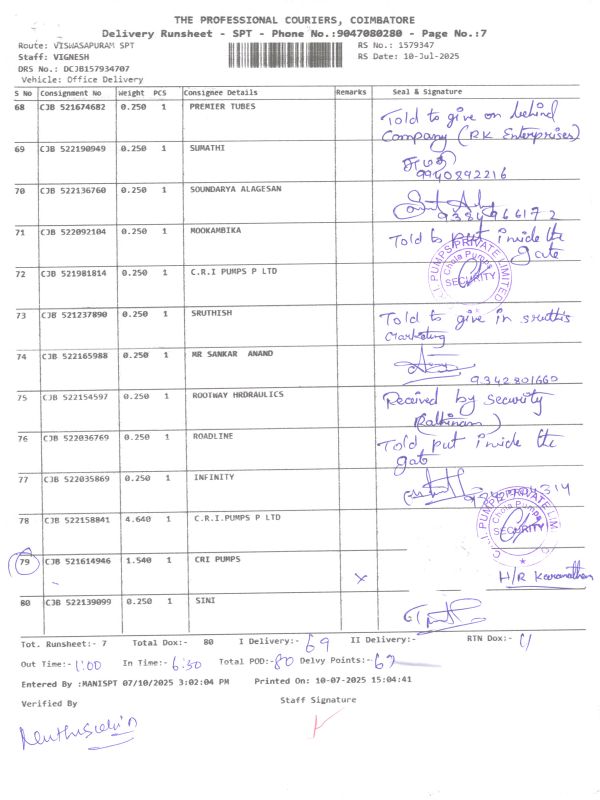 THE PROFESSIONAL COURIERS, COIMBATORE
Delivery Runsheet - SPT - Phone No.:9047080280 - Page No.:7
Route: VISWASAPURAM SPT
RS No.: 1579347
Staff: VIGNESH
RS Date: 10-Jul-2025
DRS No.: DCJB157934707
Vehicle: Office Delivery
S No Consignment No Weight PCS Consignee Details Remarks Seal & Signature
68 CJB 521674682 0.250 1 PREMIER TUBES Told to give on behind
Company (RK Enterprises)
69 CJB 522190949 0.250 1 SUMATHI சுமதி
9940892216
70 CJB 522136760 0.250 1 SOUNDARYA ALAGESAN
9384966172
71 CJB 522092104 0.250 1 MOOKAMBIKA Told to put inside the
gate
72 CJB 521981814 0.250 1 C.R.I PUMPS P LTD I. PUMPS PRIVATE LIMITED Chola Pumps SECURITY
73 CJB 521237890 0.250 1 SRUTHISH Told to give in sruthis
Marketing
74 CJB 522165988 0.250 1 MR SANKAR ANAND
9342801660
75 CJB 522154597 0.250 1 ROOTWAY HRDRAULICS Received by security
76 CJB 522036769 0.250 1 ROADLINE Told put inside the
gate
77 CJB 522035869 0.250 1 INFINITY
78 CJB 522158841 4.640 1 C.R.I.PUMPS P LTD I. PUMPS PRIVATE LIM Chola Pumps SECURITY
79 CJB 521614946 1.540 1 CRI PUMPS x H/R
80 CJB 522139099 0.250 1 SINI
Tot. Runsheet:- 7 Total Dox:- 80 I Delivery:- 69 II Delivery:- RTN Dox:- 11
Out Time:- 1:00 In Time:- 6:30 Total POD:- 80 Delvy Points:- 67
Entered By :MANISPT 07/10/2025 3:02:04 PM Printed On: 10-07-2025 15:04:41
Verified By
Staff Signature